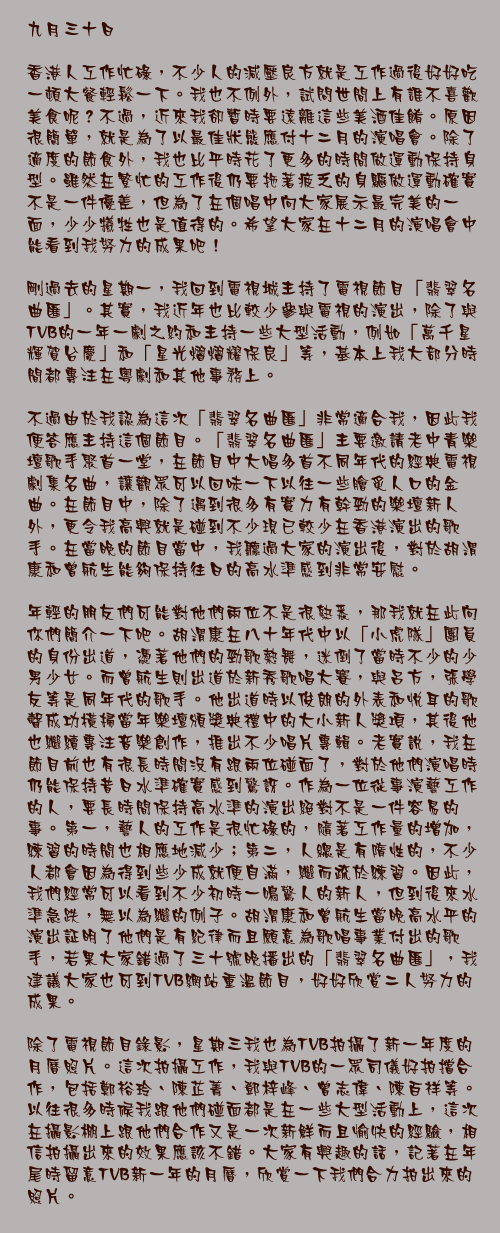 九月三十日
香港人工作忙碌，不少人的減壓良方就是工作過後好好吃
一頓大餐輕鬆一下。我也不例外，試問世間上有誰不喜歡
美食呢？不過，近來我卻暫時要遠離這些美酒佳餚。原因
很簡單，就是為了以最佳狀態應付十二月的演唱會。除了
適度的節食外，我也比平時花了更多的時間做運動保持身
型。雖然在繁忙的工作後仍要拖著疲乏的身軀做運動確實
不是一件優差，但為了在個唱中向大家展示最完美的一
面，少少犧牲也是值得的。希望大家在十二月的演唱會中
能看到我努力的成果吧！
剛過去的星期一，我回到電視城主持了電視節目「翡翠名
曲匯」。其實，我近年也比較少參與電視的演出，除了與
TVB的一年一劇之約和主持一些大型活動，例如「萬千星
輝賀台慶」和「星光熠熠耀保良」等，基本上我大部分時
間都專注在粵劇和其他事務上。
不過由於我認為這次「翡翠名曲匯」非常適合我，因此我
便答應主持這個節目。「翡翠名曲匯」主要邀請老中青樂
壇歌手聚首一堂，在節目中大唱多首不同年代的經典電視
劇集名曲，讓觀眾可以回味一下以往一些膾炙人口的金
曲。在節目中，除了遇到很多有實力有幹勁的樂壇新人
外，更令我高興就是碰到不少現已較少在香港演出的歌
手。在當晚的節目當中，我聽過大家的演出後，對於胡渭
康和曾航生能夠保持往日的高水準感到非常安慰。
年輕的朋友們可能對他們兩位不是很熟悉，那我就在此向
你們簡介一下吧。胡渭康在八十年代中以「小虎隊」團員
的身份出道，憑著他們的勁歌熱舞，迷倒了當時不少的少
男少女。而曾航生則出道於新秀歌唱大賽，與呂方，張學
友等是同年代的歌手。他出道時以俊朗的外表和悅耳的歌
聲成功橫掃當年樂壇頒獎典禮中的大小新人獎項，其後他
也繼續專注音樂創作，推出不少唱片專輯。老實說，我在
節目前也有很長時間沒有跟兩位碰面了，對於他們演唱時
仍能保持昔日水準確實感到驚訝。作為一位從事演藝工作
的人，要長時間保持高水準的演出絕對不是一件容易的
事。第一，藝人的工作是很忙碌的，隨著工作量的增加，
練習的時間也相應地減少；第二，人總是有惰性的，不少
人都會因為得到些少成就便自滿，繼而疏於練習。因此，
我們經常可以看到不少初時一鳴驚人的新人，但到後來水
準急跌，無以為繼的例子。胡渭康和曾航生當晚高水平的
演出証明了他們是有紀律而且願意為歌唱事業付出的歌
手，若果大家錯過了三十號晚播出的「翡翠名曲匯」，我
建議大家也可到TVB網站重溫節目，好好欣賞二人努力的
成果。
除了電視節目錄影，星期三我也為TVB拍攝了新一年度的
月曆照片。這次拍攝工作，我與TVB的一眾司儀好拍擋合
作，包括鄭裕玲、陳芷菁、鄧梓峰、曾志偉、陳百祥等。
以往很多時候我跟他們碰面都是在一些大型活動上，這次
在攝影棚上跟他們合作又是一次新鮮而且愉快的經驗，相
信拍攝出來的效果應該不錯。大家有興趣的話，記著在年
尾時留意TVB新一年的月曆，欣賞一下我們合力拍出來的
照片。